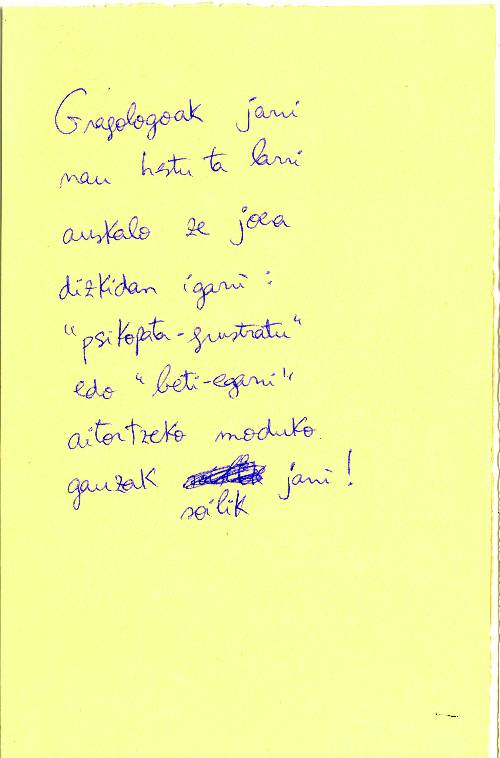 Grafologoak jarri
nau hestu ta larri
auskalo ze joera
dizkidan igarri:
"psikopata-frustratu"
edo "beti-egarri"
aitortzeko moduko
gauzak jarri!
soilik